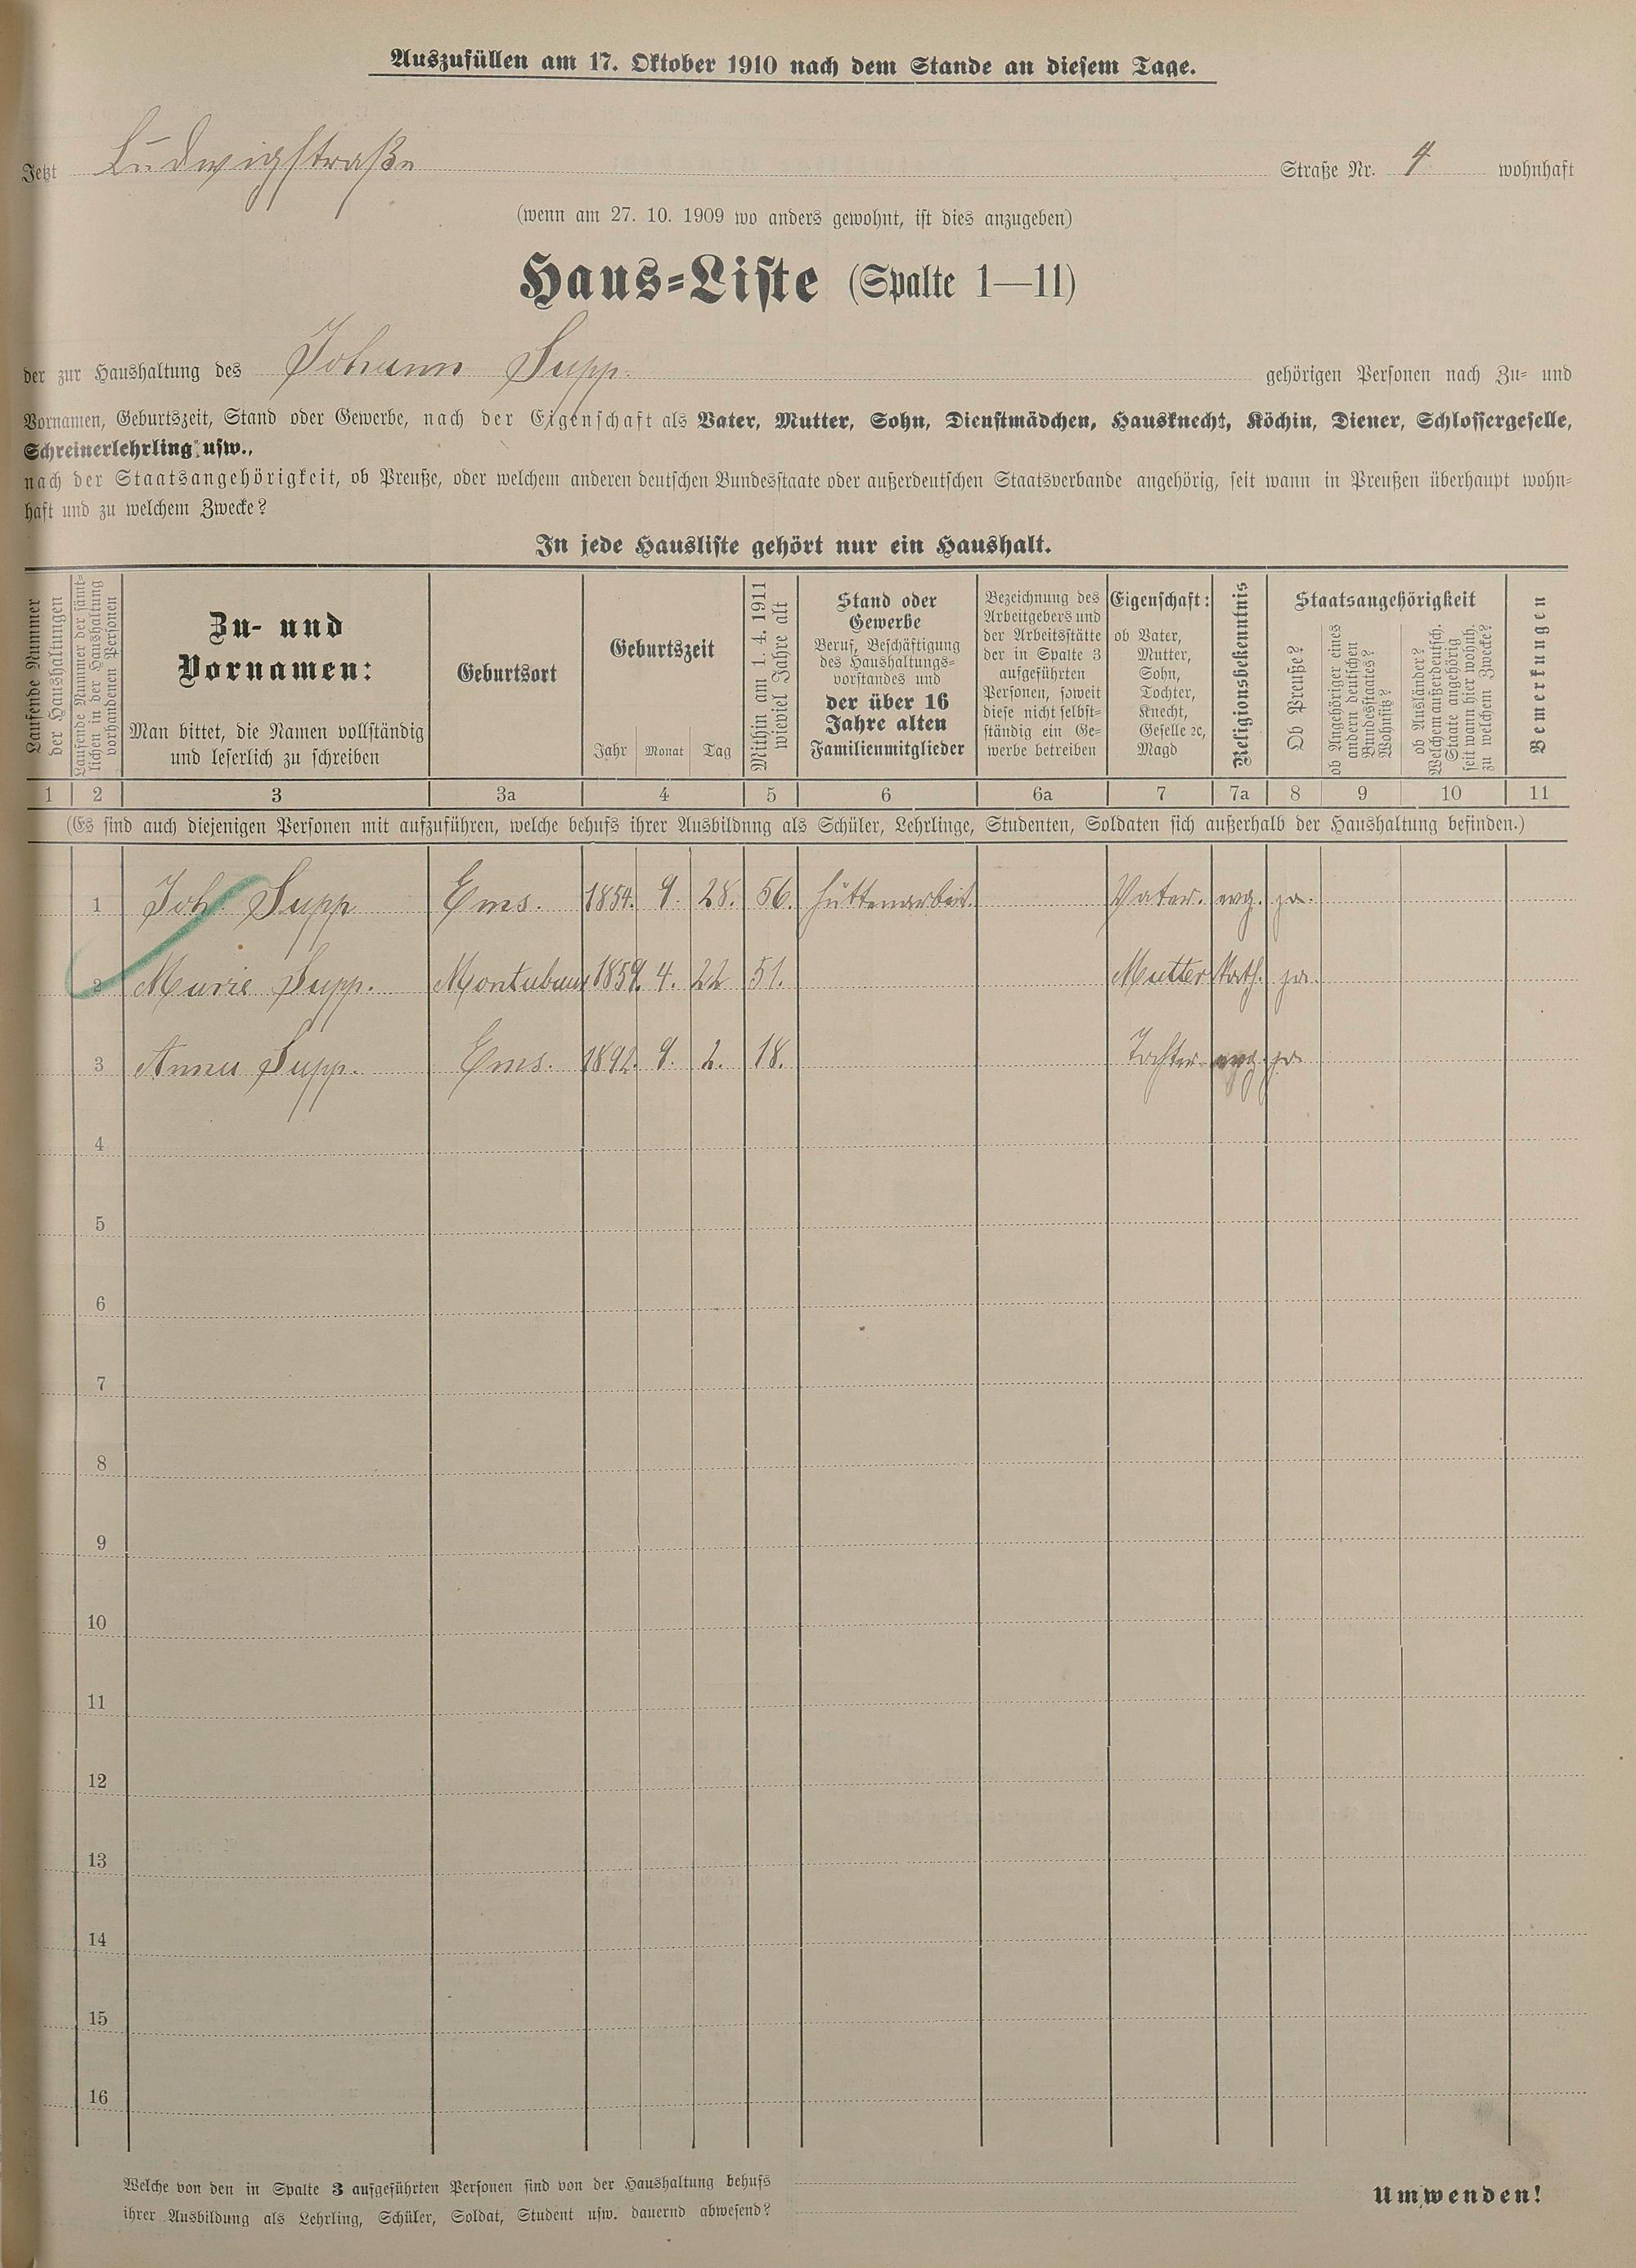 Auszufüllen am 17. Oktober 1910 nach dem Stande an diesem Tage.
Jetzt Ludwigstraße Straße Nr. 4 wohnhaft
(wenn am 27. 10. 1909 wo anders gewohnt, ist dies anzugeben)
Haus-Liste (Spalte 1—11)
der zur Haushaltung des Johann Supp. gehörigen Personen nach Zu- und
Vornamen, Geburtszeit, Stand oder Gewerbe, nach der Eigenschaft als Vater, Mutter, Sohn, Dienstmädchen, Hausknecht, Köchin, Diener, Schlossergeselle,
Schreinerlehrling usw.,
nach der Staatsangehörigkeit, ob Preuße, oder welchem anderen deutschen Bundesstaate oder außerdeutschen Staatsverbande angehörig, seit wann in Preußen überhaupt wohn-
haft und zu welchem Zwecke?
In jede Hausliste gehört nur ein Haushalt.
Laufende Nummer
der Haushaltungen
Laufende Nummer der sämt-
lichen in der Haushaltung
vorhandenen Personen
Zu- und
Vornamen:
Man bittet, die Namen vollständig
und leserlich zu schreiben
Geburtsort
Geburtszeit
Jahr Monat Tag
Mithin am 1. 4. 1911
wieviel Jahre alt
Stand oder
Gewerbe
Beruf, Beschäftigung
des Haushaltungs-
vorstandes und
der über 16
Jahre alten
Familienmitglieder
Bezeichnung des
Arbeitgebers und
der Arbeitsstätte
der in Spalte 3
aufgeführten
Personen, soweit
diese nicht selbst-
ständig ein Ge-
werbe betreiben
Eigenschaft:
ob Vater,
Mutter,
Sohn,
Tochter,
Knecht,
Geselle 2c,
Magd
Religionsbekenntnis
Staatsangehörigkeit
Ob Preuße?
ob Angehöriger eines
andern deutschen
Bundesstaates?
Wohnsitz?
ob Ausländer?
Welchem außerdeutsch.
Staate angehörig
seit wann hier wohnh.
zu welchem Zwecke?
Bemerkungen
1 2 3 3a 4 5 6 6a 7 7a 8 9 10 11
(Es sind auch diejenigen Personen mit aufzuführen, welche behufs ihrer Ausbildung als Schüler, Lehrlinge, Studenten, Soldaten sich außerhalb der Haushaltung befinden.)
1 Joh. Supp Ems. 1854. 9. 28. 56. Hüttenarbeit. Vater. evg. ja.
2 Marie Supp. Montabaur 1859. 4. 22 51. Mutter Kath. ja.
3 Anna Supp. Ems. 1892. 9. 2. 18. Tochter evg. ja
4
5
6
7
8
9
10
11
12
13
14
15
16
Welche von den in Spalte 3 aufgeführten Personen sind von der Haushaltung behufs
ihrer Ausbildung als Lehrling, Schüler, Soldat, Student usw. dauernd abwesend?
Umwenden!